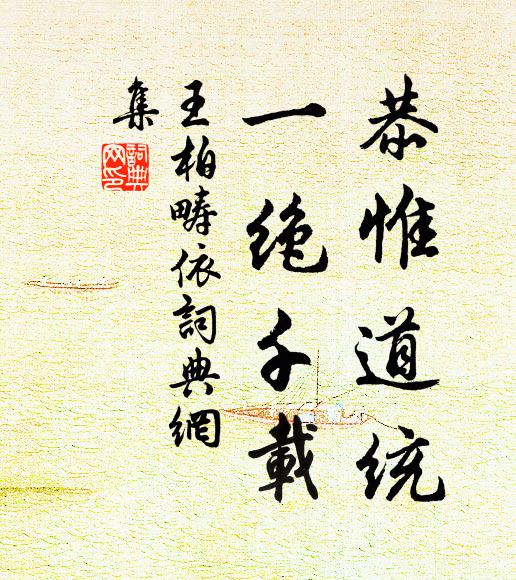 恭惟道統
一絶千載
王柏疇依詞典網
集
詞典
网印